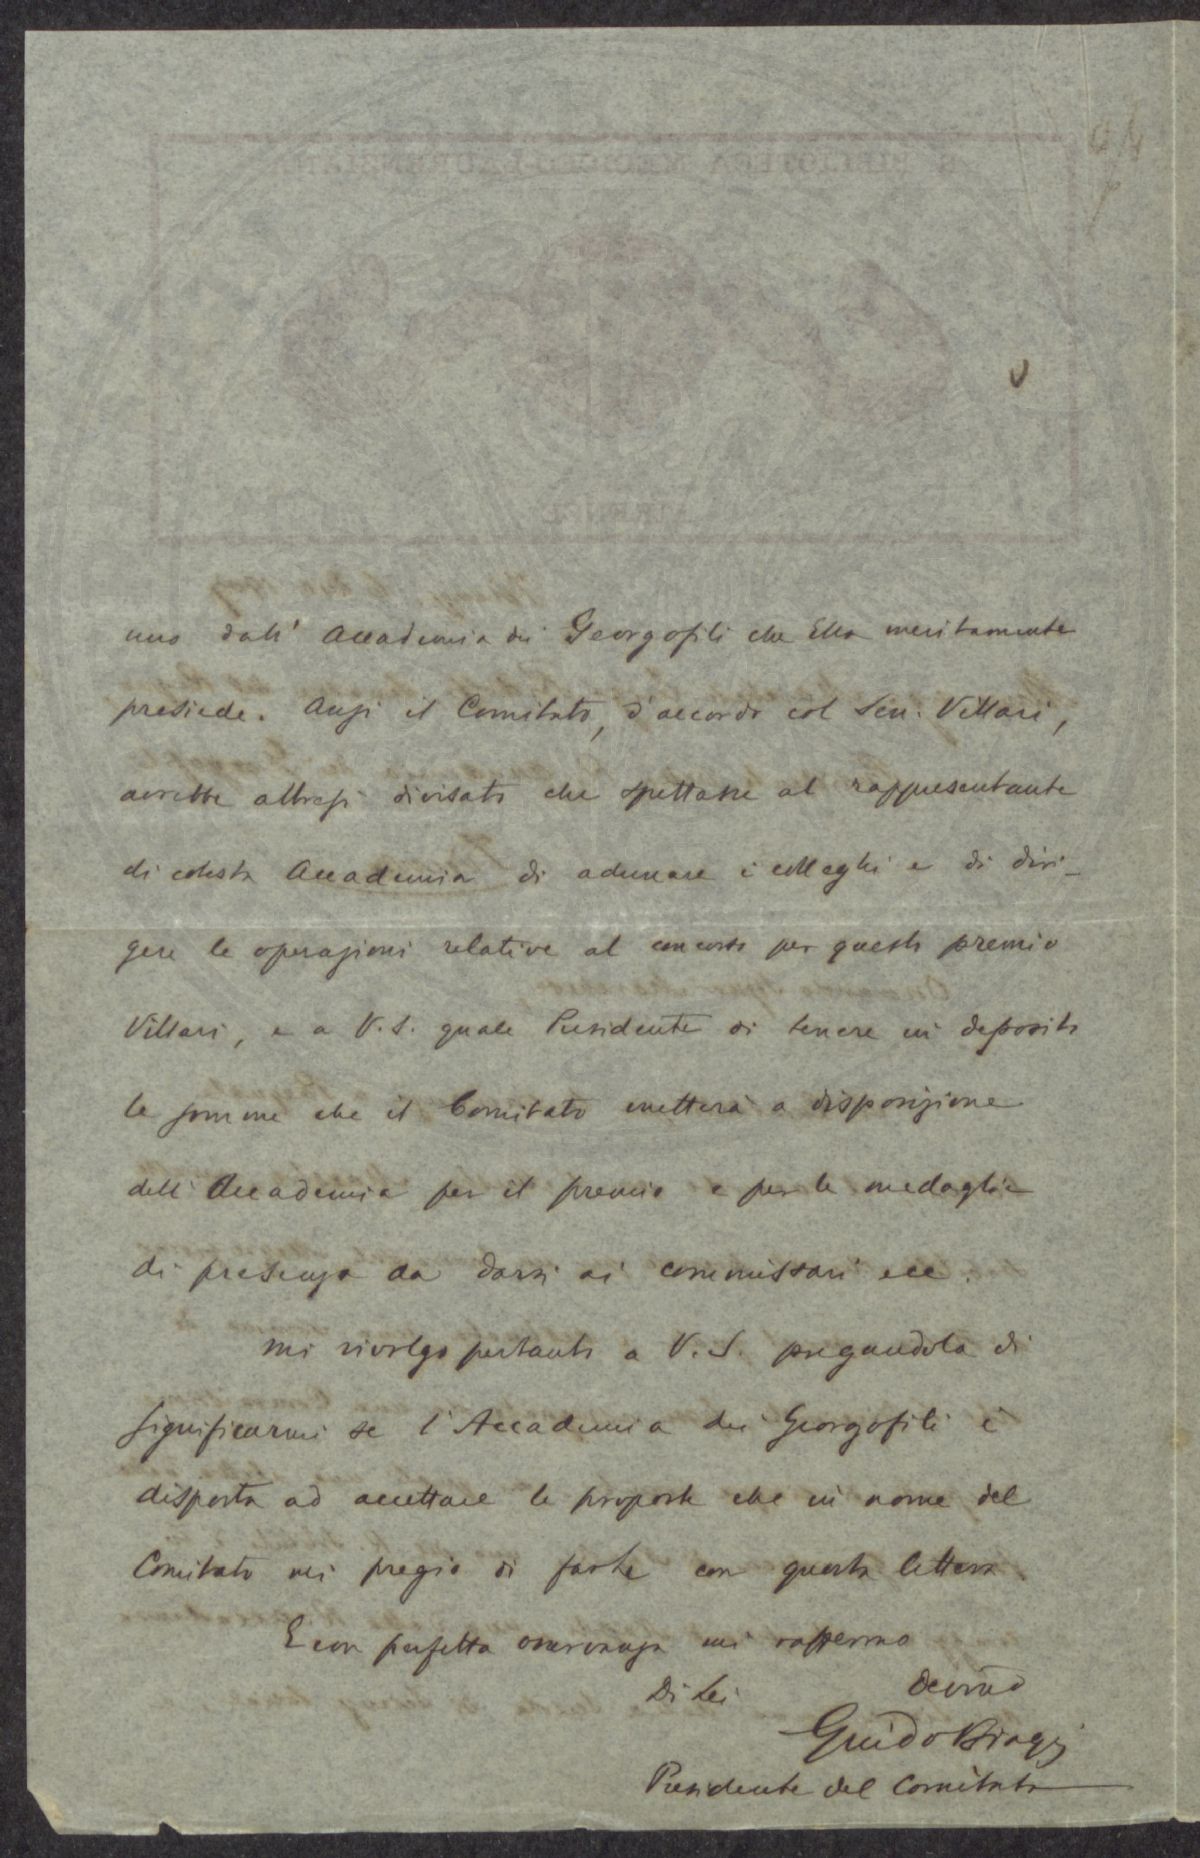 uno dall' Accademia dei Georgofili che Ella meritamente
presiede. Anzi il Comitato, d'accordo col Sen. Villari,
avrebbe altresì divisato che spettasse al rappresentante
di codesta Accademia di adunare i colleghi e di diri-
gere le operazioni relative al concorso per questo premio
Villari, e a V. S. quale Presidente di tenere in deposito
le somme che il Comitato metterà a disposizione
dell' Accademia per il premio e per le medaglie
di presenza da darsi ai commissari ecc.
Mi rivolgo pertanto a V. S. pregandola di
significarmi se l'Accademia dei Georgofili è
disposta ad accettare le proposte che in nome del
Comitato mi pregio di farle con questa lettera.
E con perfetta osservanza mi raffermo
Di Lei Devmo
Guido Biagi
Presidente del Comitato